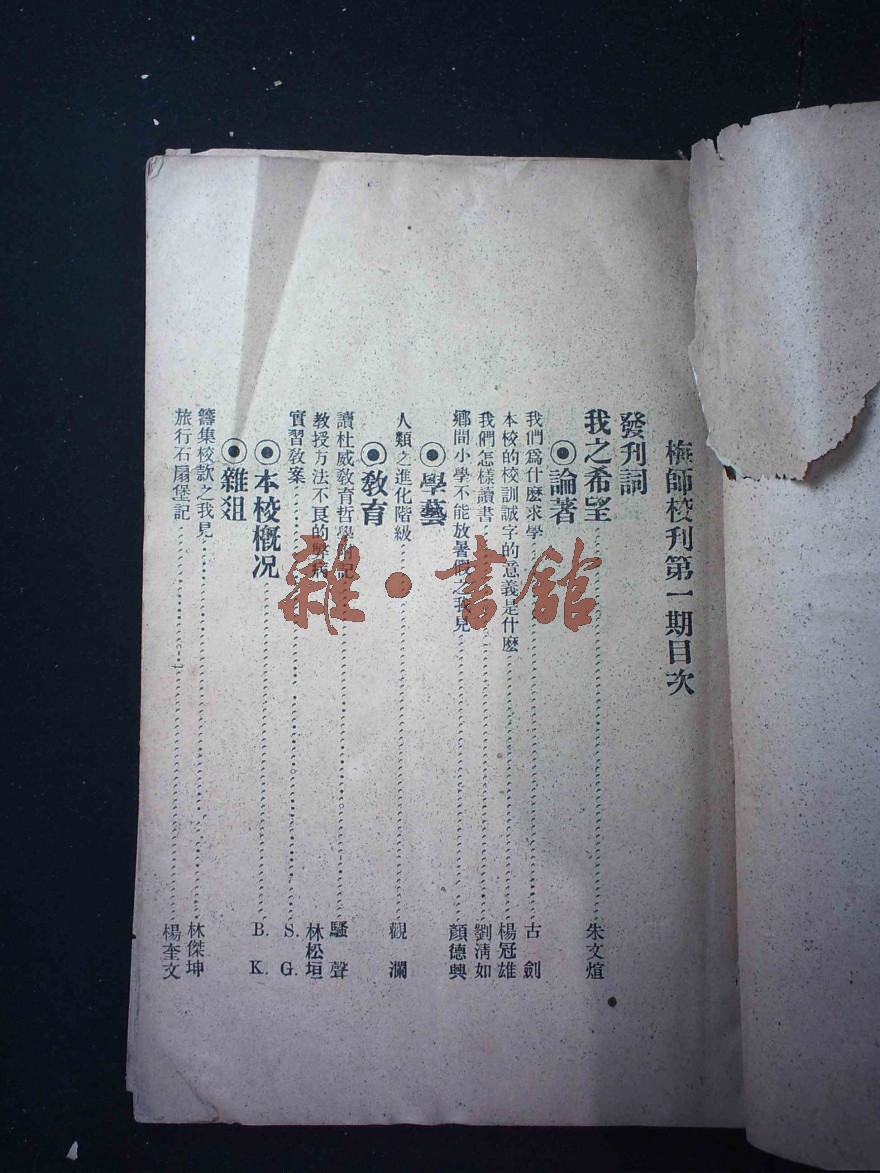 梅師校刊第一期目次
發刊詞
我之希望 朱文煊
◉論著
我們爲什麼求學 古劍
本校的校訓誠字的意義是什麽 楊冠雄
我們怎樣讀書 劉淸如
鄉間小學不能放暑假之我見 顏德興
◉學藝
人類之進化階級 觀瀾
◉敎育
讀杜威敎育哲學附記 騷聲
教授方法不良的弊病 林松垣
實習敎案 S. G.
◉本校槪况 B. K.
◉雜俎
籌集校款之我見 林傑坤
旅行石扇堡記 楊奎文
雜·書館